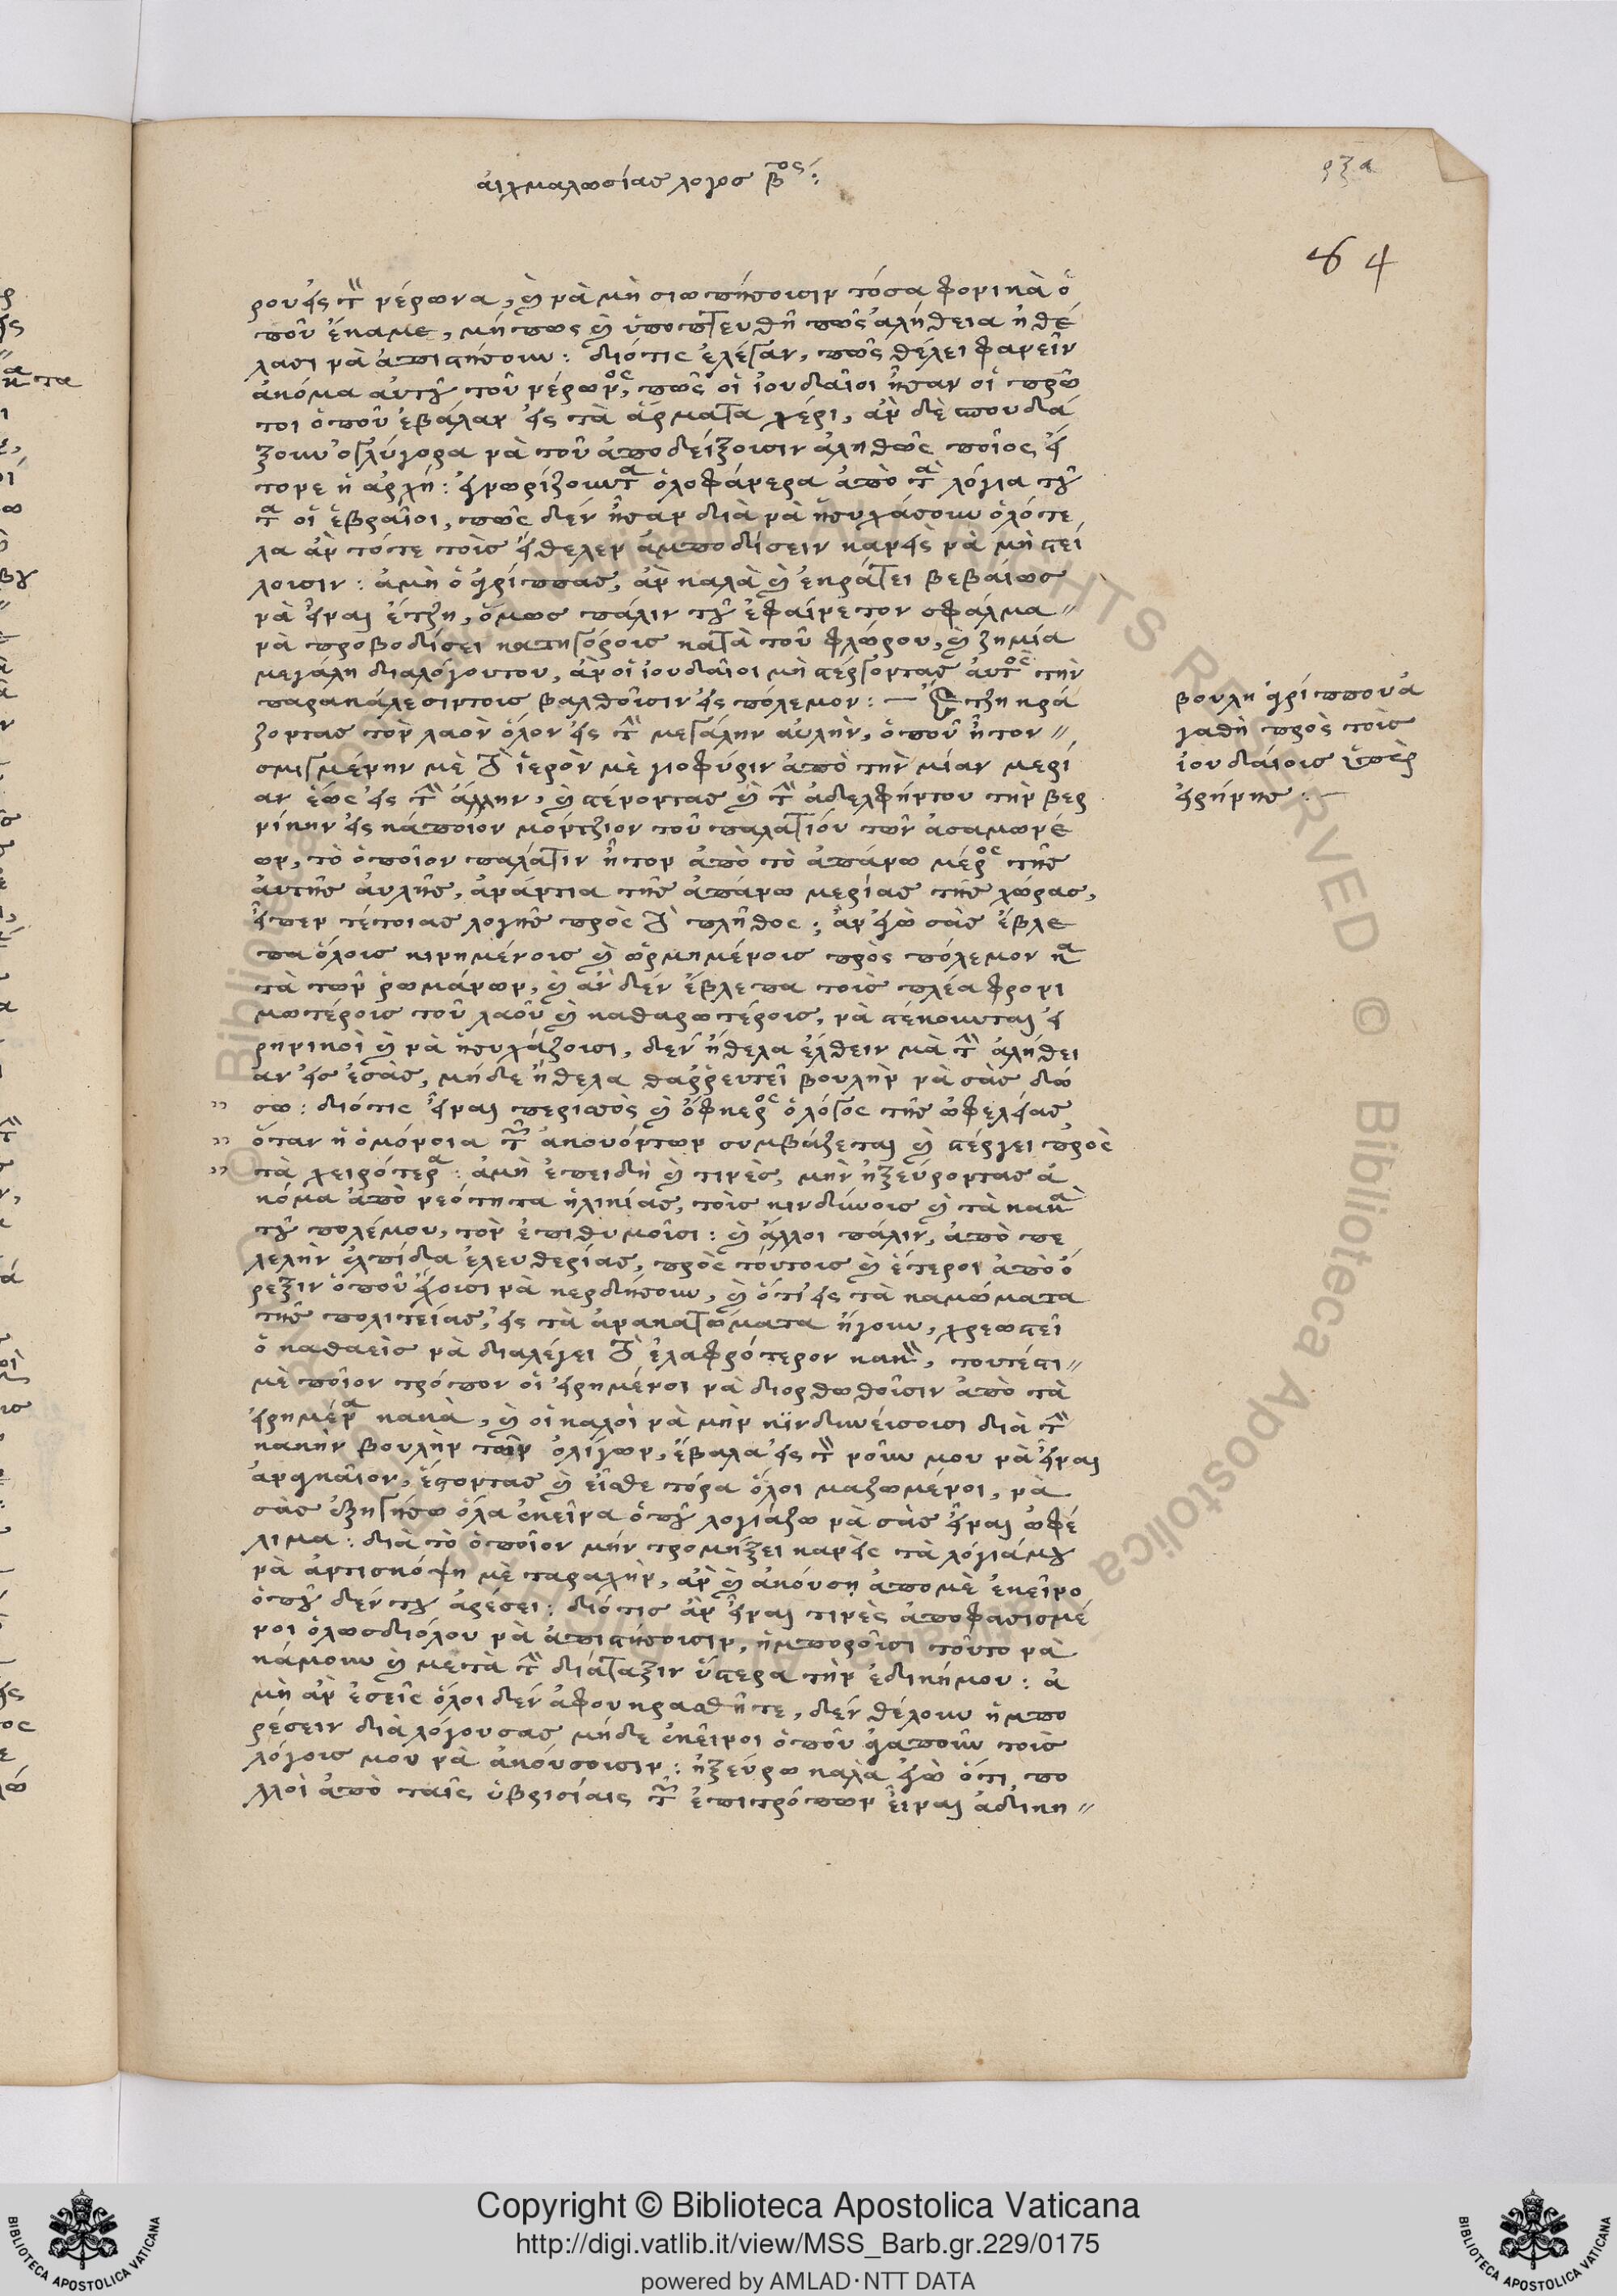 αἰχμαλωσίας λογος βος:
ρξα
64
ρου εἰς τὴν νέρωνα, καὶ νὰ μὴ σιωπήσουσιν τόσα φονικὰ ὁ
ποῦ ἔκαμε, μήπως καὶ ὑποπτευθῆ πῶς ἀλήθεια ἠθέ
λασι νὰ ἀπιστήσουν: διότις ἐλέγαν, πῶς θέλει φανεῖν
ἀκόμα αὐτοῦ τοῦ νέρωνος, πῶς οἱ ἰουδαῖοι ἦσαν οἱ πρῶ
τοι ὁποῦ ἐβάλαν εἰς τὰ ἄρματα χέρι, ἂν δὲ σπουδά
ξουν ὀγλύγορα νὰ τοῦ ἀποδείξουσιν ἀληθῶς ποῖος εἶ
τονε ἡ ἀρχή: ἐγνωρίζουντα ὁλοφάνερα ἀπὸ τὰ λόγια του
τα οἱ ἑβραῖοι, πῶς δὲν ἦσαν διὰ νὰ ἡσυχάσουν ὁλότε
λα ἂν τότε τοὺς ἤθελεν ἀμποδίσειν κανεὶς νὰ μὴ στεί
λουσιν: ἀμὴ ὁ ἀγρίππας, ἂν καλὰ καὶ ἐκράτει βεβαίως
νὰ εἶναι ἔτζη, ὅμως πάλιν τοῦ ἐφαίνετον σφάλμα
νὰ προβοδίσει κατηγόρους κατὰ τοῦ φλώρου, καὶ ζημία
μεγάλη διαλόγουτου, ἂν οἱ ἰουδαῖοι μὴ στέργοντας αὐτὸς τὴν
παρακάλεσιντους βαλθοῦσιν εἰς πόλεμον: — Ἔτζη κρά
ζοντας τὸν λαὸν ὅλον εἰς τὴν μεγάλην αὐλὴν, ὁποῦ ἦτον
σμιγμένην μὲ τὸ ἱερὸν μὲ γιοφύριν ἀπὸ τὴν μίαν μερι
αν ἕως εἰς τὴν ἄλλην, καὶ στένοντας καὶ τὴν ἀδελφήντου τὴν βερ
νίκην εἰς κάποιον μόντζιον τοῦ παλατιοῦ τῶν ἀσαμωνέ
ων, τὸ ὁποῖον παλάτιν ἦτον ἀπὸ τὸ ἀπάνω μέρος τῆς
αὐτῆς αὐλῆς, ἀνάντια τῆς ἀπάνω μερίας τῆς χώρας,
εἶπεν τέτοιας λογῆς πρὸς τὸ πλῆθος: ἂν ἐγὼ σᾶς ἔβλε
πα ὅλους κινημένους καὶ ὡρμημένους πρὸς πόλεμον κα
τὰ τῶν ῥωμάνων, καὶ ἂν δὲν ἔβλεπα τοὺς πλέα φρονι
μωτέρους τοῦ λαοῦ καὶ καθαρωτέρους, νὰ στέκουνται εἰ
ρηνικοὶ καὶ νὰ ἡσυχάζουσι, δὲν ἤθελα ἐλθεῖν μὰ τὴν ἀλήθει
αν εἰς ἐσᾶς, μήδε ἤθελα θαῤῥευτεῖ βουλὴν νὰ σᾶς δώ
σω: διότις εἶναι περισσὸς καὶ ὄφκερος ὁ λόγος τῆς ὠφελείας
ὅταν ἡ ὁμόνοια τῶν ἀκουόντων συμβάζεται καὶ στέργει πρὸς
τὰ χειρότερα: ἀμὴ ἐπειδὴ καὶ τινὲς, μὴν ἠξεύροντας ἀ
κόμα ἀπὸ νεότητα ἡλικίας, τοὺς κινδύνους καὶ τὰ κακὰ
τοῦ πολέμου, τὸν ἐπιθυμοῦσι: καὶ ἄλλοι πάλιν, ἀπὸ πε
λελὴν ἐλπίδα ἐλευθερίας, πρὸς τούτοις καὶ ἕτεροι ἀπὸ ὄ
ρεξιν ὁποῦ ἔχουσι νὰ κερδήσουν, καὶ ὅτι εἰς τὰ καμώματα
τῆς πολιτείας, εἰς τὰ ἀνακατώματα ἤγουν, χρεωστεῖ
ὁ καθαεὶς νὰ διαλέγει τὸ ἐλαφρότερον κακὸν, τουτέστι
μὲ ποῖον τρόπον οἱ εἰρημένοι νὰ διορθωθοῦσιν ἀπὸ τὰ
εἰρημένα κακὰ, καὶ οἱ καλοὶ νὰ μὴν κϊνδυνέυσουσι διὰ τὴν
κακὴν βουλὴν τῶν ὀλίγων, ἔβαλα εἰς τὸν νοῦν μου νὰ εἶναι
ἀναγκαῖον, ἔστοντας καὶ εἶσθε τόρα ὅλοι μαζωμένοι, νὰ
σᾶς ἐξηγήσω ὅλα ἐκεῖνα ὁποῦ λογιάζω νὰ σᾶς εἶναι ὠφέ
λιμα: διὰ τὸ ὁποῖον μὴν τρομήξει κανεὶς τὰ λόγιάμου
νὰ ἀντισκόψη μὲ ταραχὴν, ἂν καὶ ἀκούση ἀπομὲ ἐκεῖνο
ὁποῦ δέν του ἀρέσει: διότις ἂν εἶναι τινὲς ἀποφασισμέ
νοι ὁλωσδιόλου νὰ ἀπιστήσουσιν, ἠμποροῦσι τοῦτο νὰ
κάμουν καὶ μετὰ τὴν διάταξιν ὕστερα τὴν ἐδικήμου: ἀ
μὴ ἂν ἐσεῖς ὅλοι δὲν ἀφουκρασθῆτε, δὲν θέλουν ἠμπο
ρέσειν διὰ λόγουσας μήδε ἐκεῖνοι ὁποῦ ἀγαποῦν τοὺς
λόγους μου νὰ ἀκούσουσιν: ἠξεύρω καλὰ ἐγὼ ὅτι πο
λλοὶ ἀπὸ ταῖς ὑβρισίαις τῶν ἐπιτρόπων εἶναι ἀδικη
βουλη ἀγρίππου ἀ
γαθὴ πρὸς τοὺς
ἰουδαίους ὑπὲρ
εἰρήνης.
Copyright © Biblioteca Apostolica Vaticana
http://digi.vatlib.it/view/MSS_Barb.gr.229/0175
powered by AMLAD·NTT DATA
BIBLIOTECA APOSTOLICA VATICANA
BIBLIOTECA APOSTOLICA VATICANA